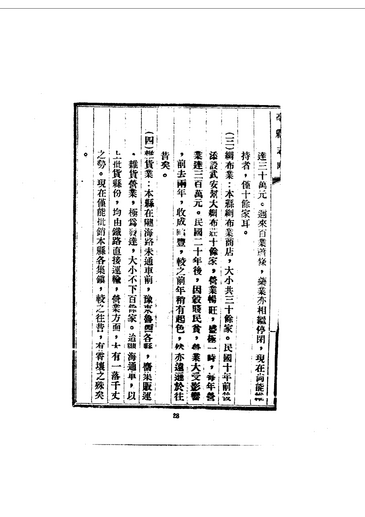 達三十萬元。邇來百業蕭條，藥業亦相繼停閉，現在尚能維
持者，僅十餘家耳。
（三）綢布業：本縣綢布業商店，大小共三十餘家。民國十年前後
添設武安幫大綢布莊十餘家，營業暢旺，盛極一時，每年營
業達三百萬元。民國二十年後，因穀賤民貧，營業大受影響
，前去兩年，收成豐，較之前年稍有起色，然亦遠遜於往
昔矣。
（四）雜貨業：本縣在隴海路未通車前，豫東魯西各縣，
。雜貨營業，極為發達，大小不下百餘家。迨隴海通車，以
上批貨縣份，均由鐵路直接運輸，營業方面，大有一落千丈
之勢。現在僅能批銷本縣各集鎮，較之往昔，有霄壤之殊矣
。
28